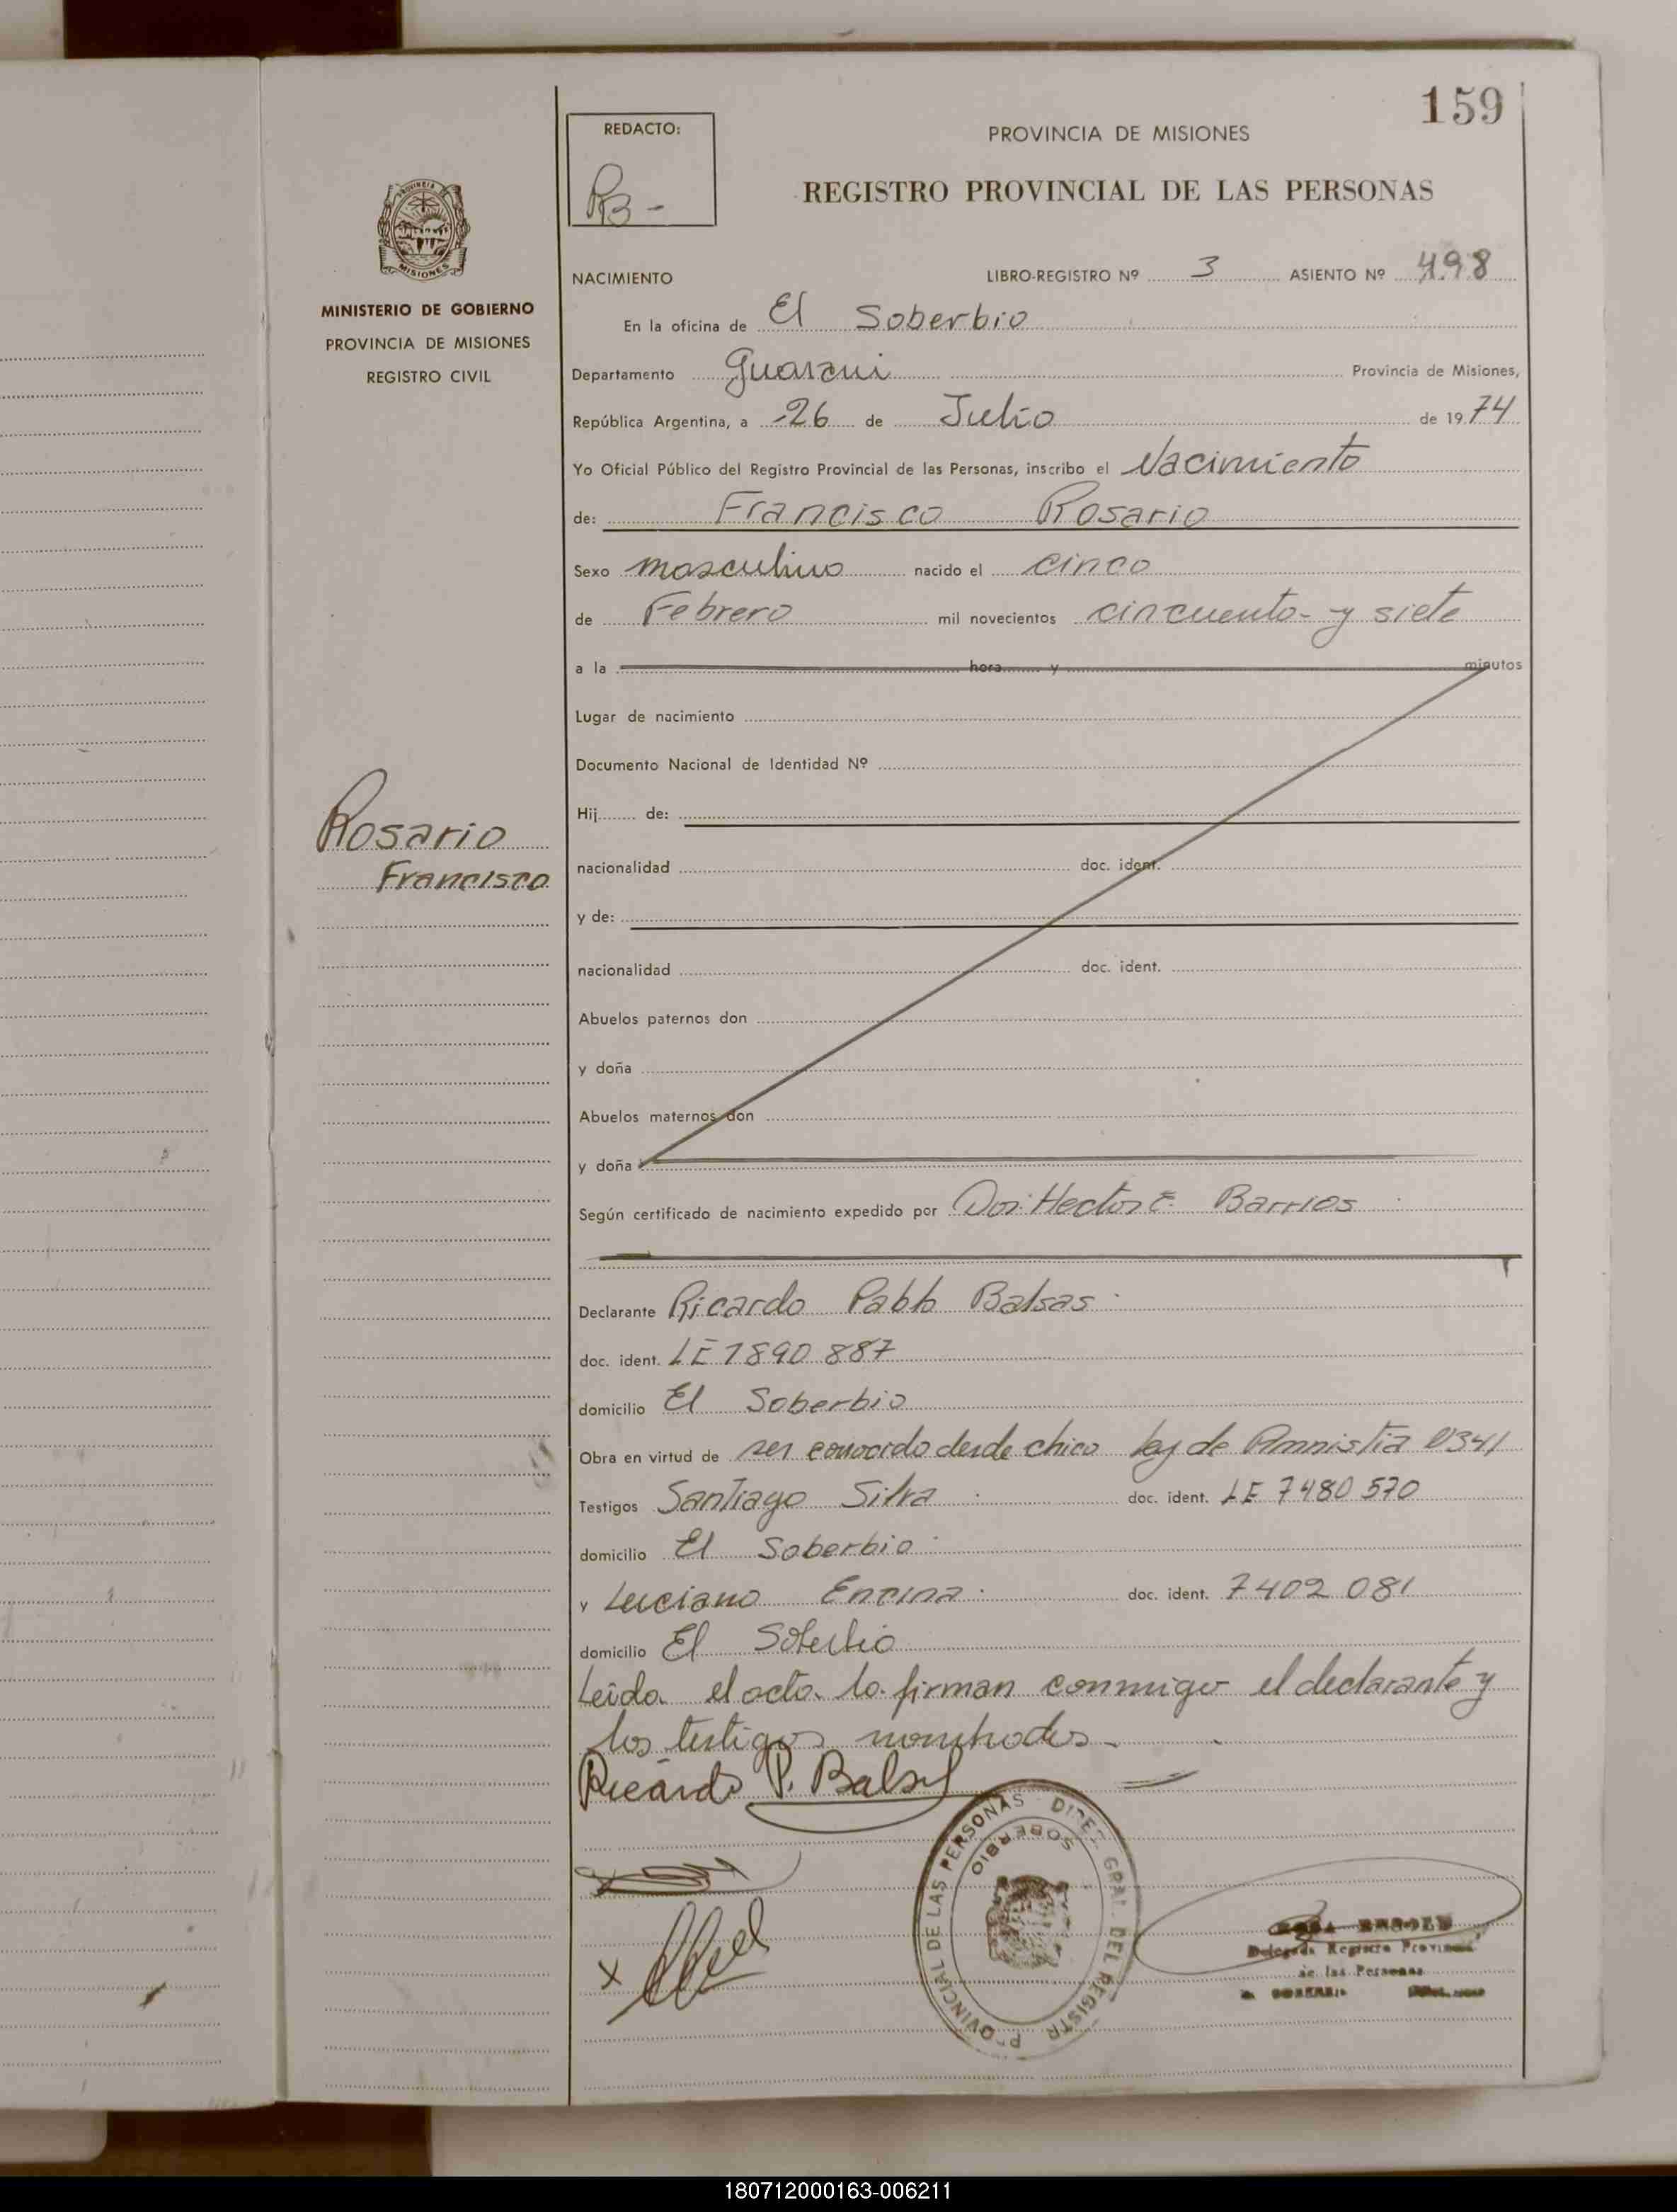 159
REDACTO:
PROVINCIA DE MISIONES
REGISTRO PROVINCIAL DE LAS PERSONAS
PB -
PROVINCIA DE
MISIONES
MINISTERIO DE GOBIERNO
PROVINCIA DE MISIONES
REGISTRO CIVIL
Rosario
Francisco
NACIMIENTO LIBRO-REGISTRO Nº 3 ASIENTO Nº 498
En la oficina de El Soberbio
Departamento Guarani Provincia de Misiones,
República Argentina, a 26 de Julio de 1974
Yo Oficial Público del Registro Provincial de las Personas, inscribo el Nacimiento
de: Francisco Rosario
Sexo masculino nacido el cinco
de Febrero mil novecientos cincuenta y siete
a la hora y minutos
Lugar de nacimiento
Documento Nacional de Identidad Nº
Hij de:
nacionalidad doc. ident.
y de:
nacionalidad doc. ident.
Abuelos paternos don
y doña
Abuelos maternos don
y doña
Según certificado de nacimiento expedido por Dor. Hector E. Barrios
Declarante Ricardo Pablo Balsas
doc. ident. LE 1890 887
domicilio El Soberbio
Obra en virtud de ser conocido desde chico ley de Amnistia
Testigos Santiago Silva doc. ident. LE 7480 570
domicilio El Soberbio
y Luciano Encina doc. ident. 7402 081
domicilio El Soberbio
Leida el acta la firman conmigo el declarante y
los testigos nombrados -
Ricardo P. Balsas
PROVINCIAL DE LAS PERSONAS - DIREC. GRAL. DEL REGISTR
SOBERBIO
Delegada Registro Provincial
de las Personas
180712000163-006211